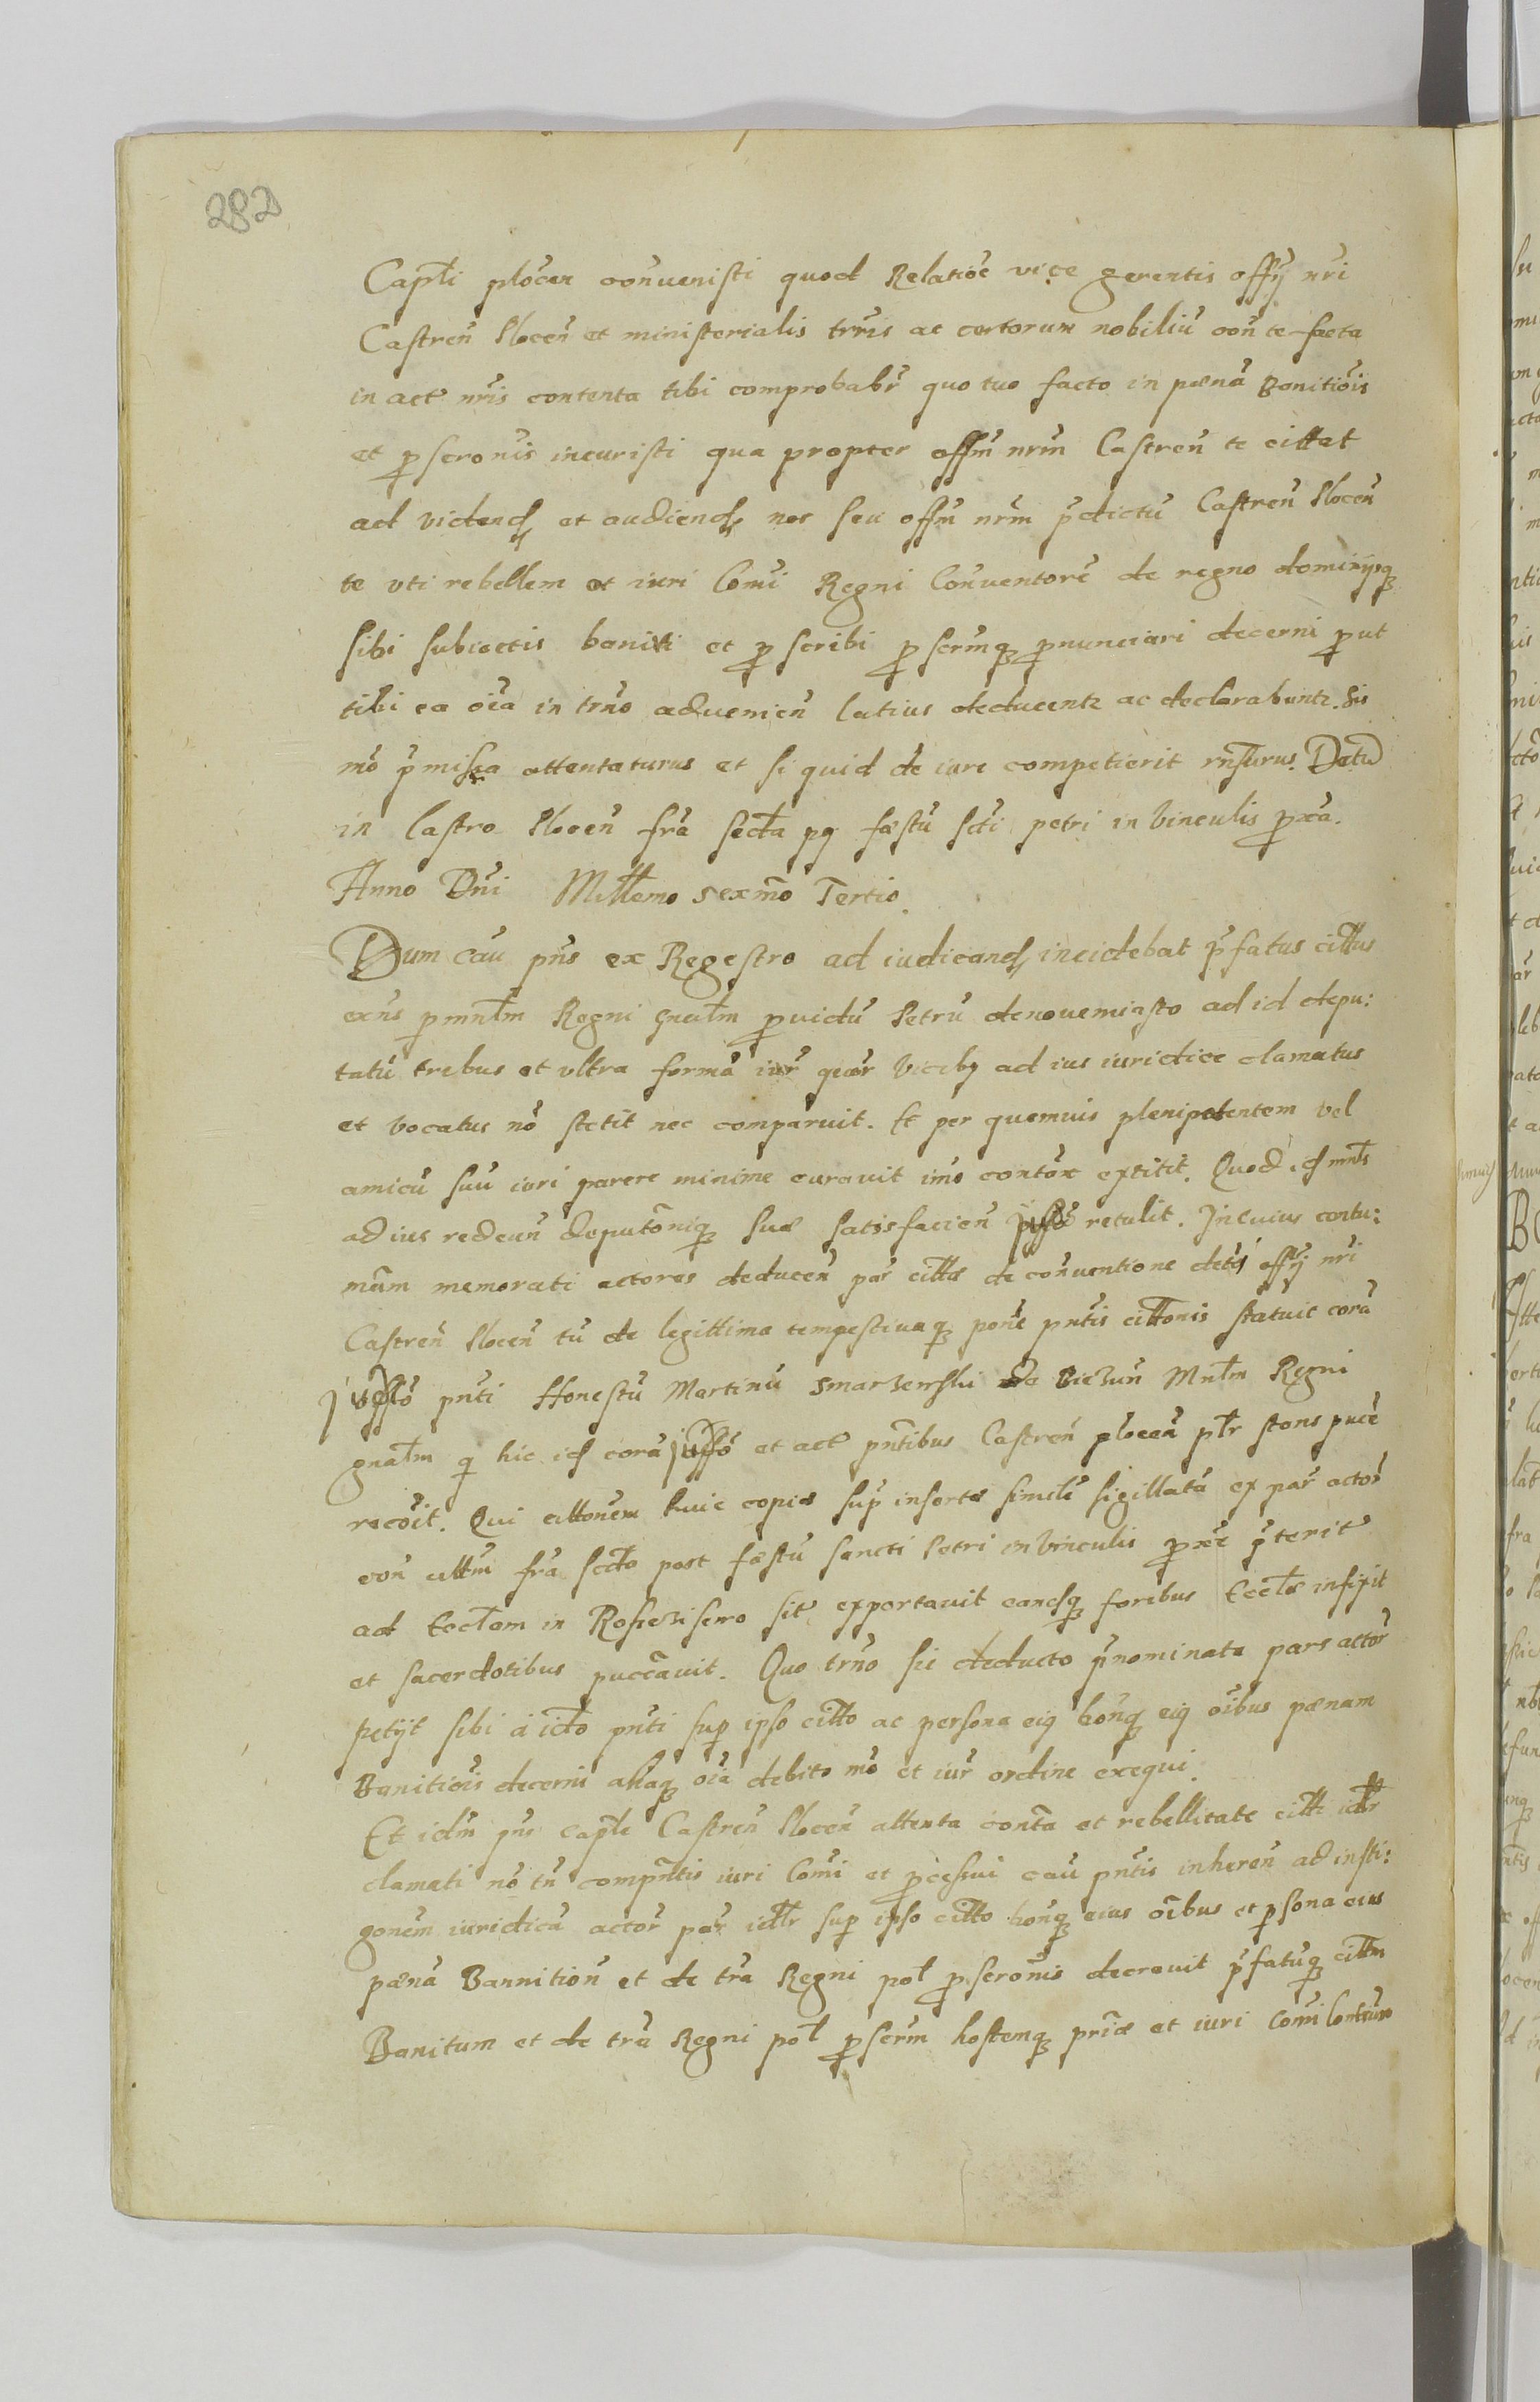 282
Caplĩ plocen conuenisti quod Relatiõe vice gerentis offÿ nr̃i
Castreñ Plocen et ministerialis trr̃is ac certorum nobiliũ con te facta
in act nr̃is contenta tibi comprobabr̃ quo tuo facto in pænã Banitiõis
et p scronis incuristi qua propter offm̃ nrm̃ Castreñ te cittat
ad videnđ et audienđ nos seu offm̃ nrm̃ p̃dictũ Castreñ Plocen
te vti rebellem et iuri Com̃i Regni Conuentorẽ de regno dominÿsq
sibi subiectis baniri et p scribi p scrmq̃ pnunciari decerni put
tibi ea oĩa in trño aduenien latius deducentr ac declarabuntr. Sis
mõ p̃missa attentaturus et si quid de iure competierit rñsurus. Datũ
in Castro Plocen frã sectã pq fæstũ scti petri in Vinculis pxã.
Anno Dñi Millẽmo sexm̃o Tertio.
Dum caũ pñs ex Regestro ad iudicanđ incidebat p̃fatus cittus
exñs p mnl̃m Regni gnal̃m puidũ Petrũ denouemiasto ad id depu:
tatũ trebus et vltra formã iur̃ qear̃ Vicibq ad ius iuridice clamatus
et vocatus nõ stetit nec comparuit. Et per quemuis plenipotentem vel
amicũ suũ iuri parere minime curauit imo contõx extitit. Quod iđ mnl̃s
ad ius redeuñ deputõniq suæ satisfacien retulit. In cuius contu:
mãm memorati actores deducen par̃ cittæ de conuentione dctĩ offÿ nr̃i
Castreñ Plocen tũ de legittima tempestiuaq ponẽ pñtis cittonis statuit corã
pñti Honestũ Martinũ Smarzenski de Biezuñ Mnl̃m Regni
gnal̃m q hic iđ corã et act pñtibus Castreñ plocen pl̃r stans
recõit. Qui cittonem huic copiæ sup insertæ similẽ sigillatã ex par̃ actor̃
con cittm̃ frã sectã post fæstũ sancti Petri in Vinculis pxẽ p̃terit
ad Eccl̃am in Rosciszewo sit exportauit eandq foribus Eccl̃æ infixit
et sacerdotibus puccãuit. Quo trño sic deducto p̃nominata pars actor̃
petÿt sibi à icto pñti sup ipso citto ac persona eiq bonq eiq oĩbus pænam
Banitiõis decerni aliaq oĩa debito mõ et iur̃ ordine exequi.
Et idm̃ pñs capl̃e Castreñ Plocen attenta contã et rebellitate citti idl̃r
clamati nõ tñ compñtis iuri Com̃i et pcessui caũ pñtis inheren ad insti:
gonem iuridicã actor̃ par̃ idl̃r sup ipso citto bonq eius oĩbus et p sona eius
pænã Bannition et de trã Regni pol p scronis decreuit p̃fatũq cittm
Banitum et de trã Regni pol p scrm̃ hostemq priæ et iuri Com̃i